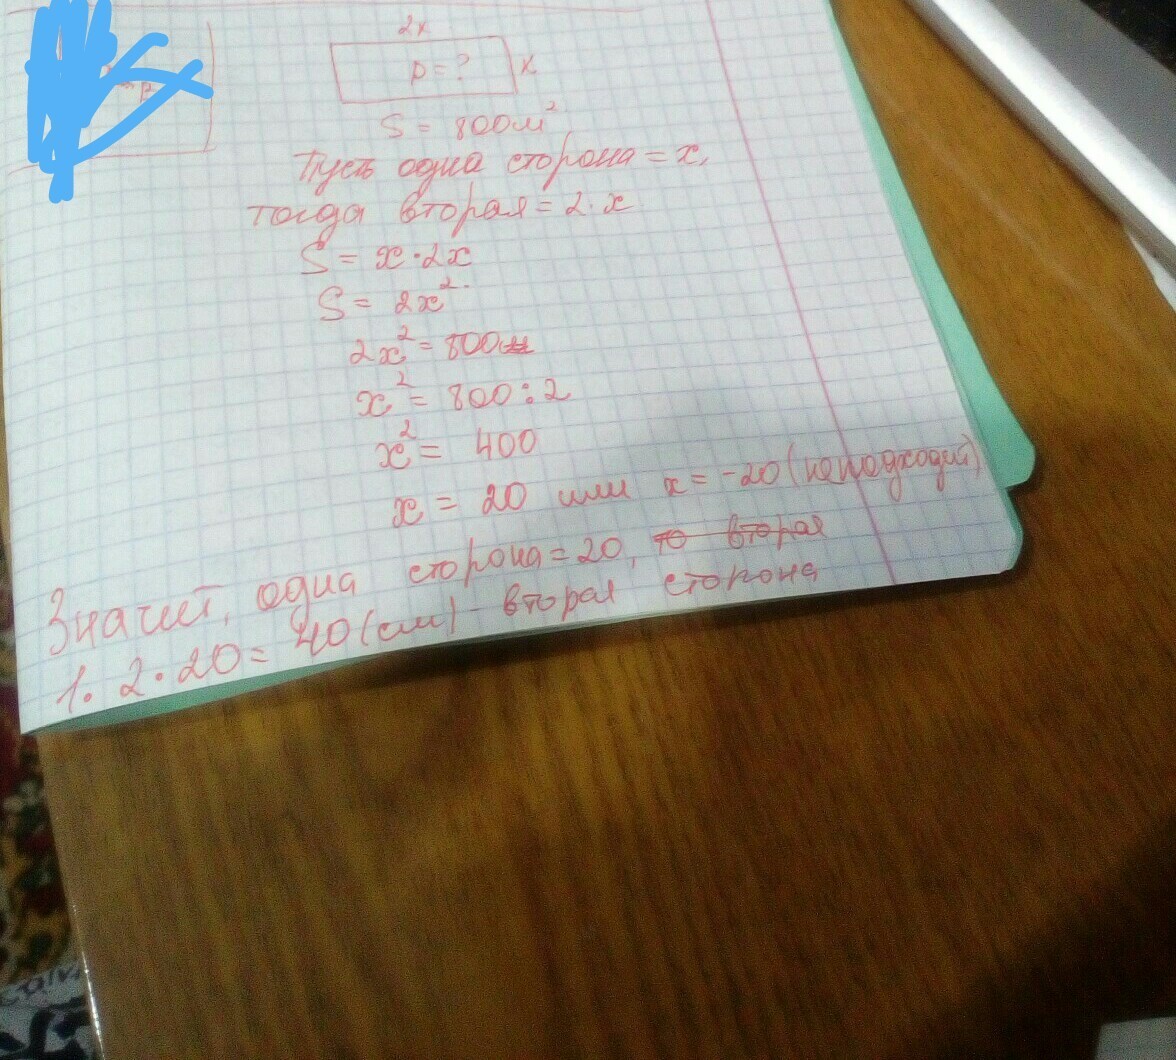 2x
P = ?
x
S = 800м²
Пусть одна сторона = x,
тогда вторая = 2·x
S = x·2x
S = 2x².
2x² = 800
x² = 800 : 2
x² = 400
x = 20 или x = -20 (не подходит)
Значит, одна сторона = 20, то вторая
1. 2·20 = 40 (см) - вторая сторона